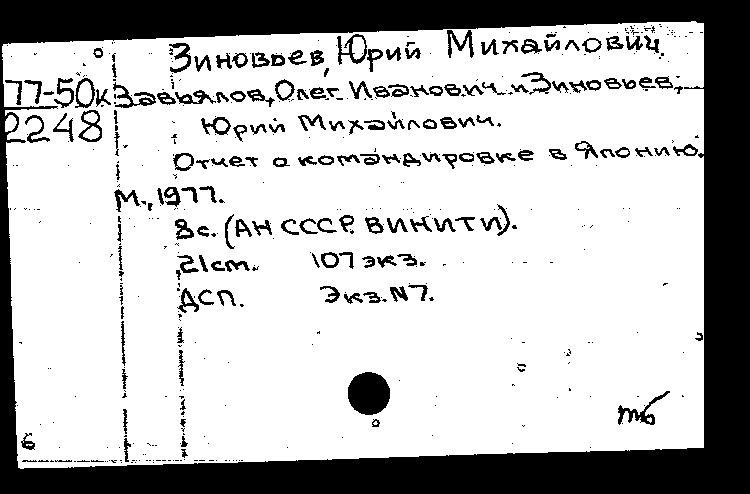 Зиновьев, Юрий Михайлович
77-50к Завьялов, Олег Иванович и Зиновьев,
2248 Юрий Михайлович.
Отчет о командировке в Японию.
М., 1977.
8с. (АН СССР. ВИНИТИ).
21см. 107 экз.
ДСП. Экз. N7.
тб
6